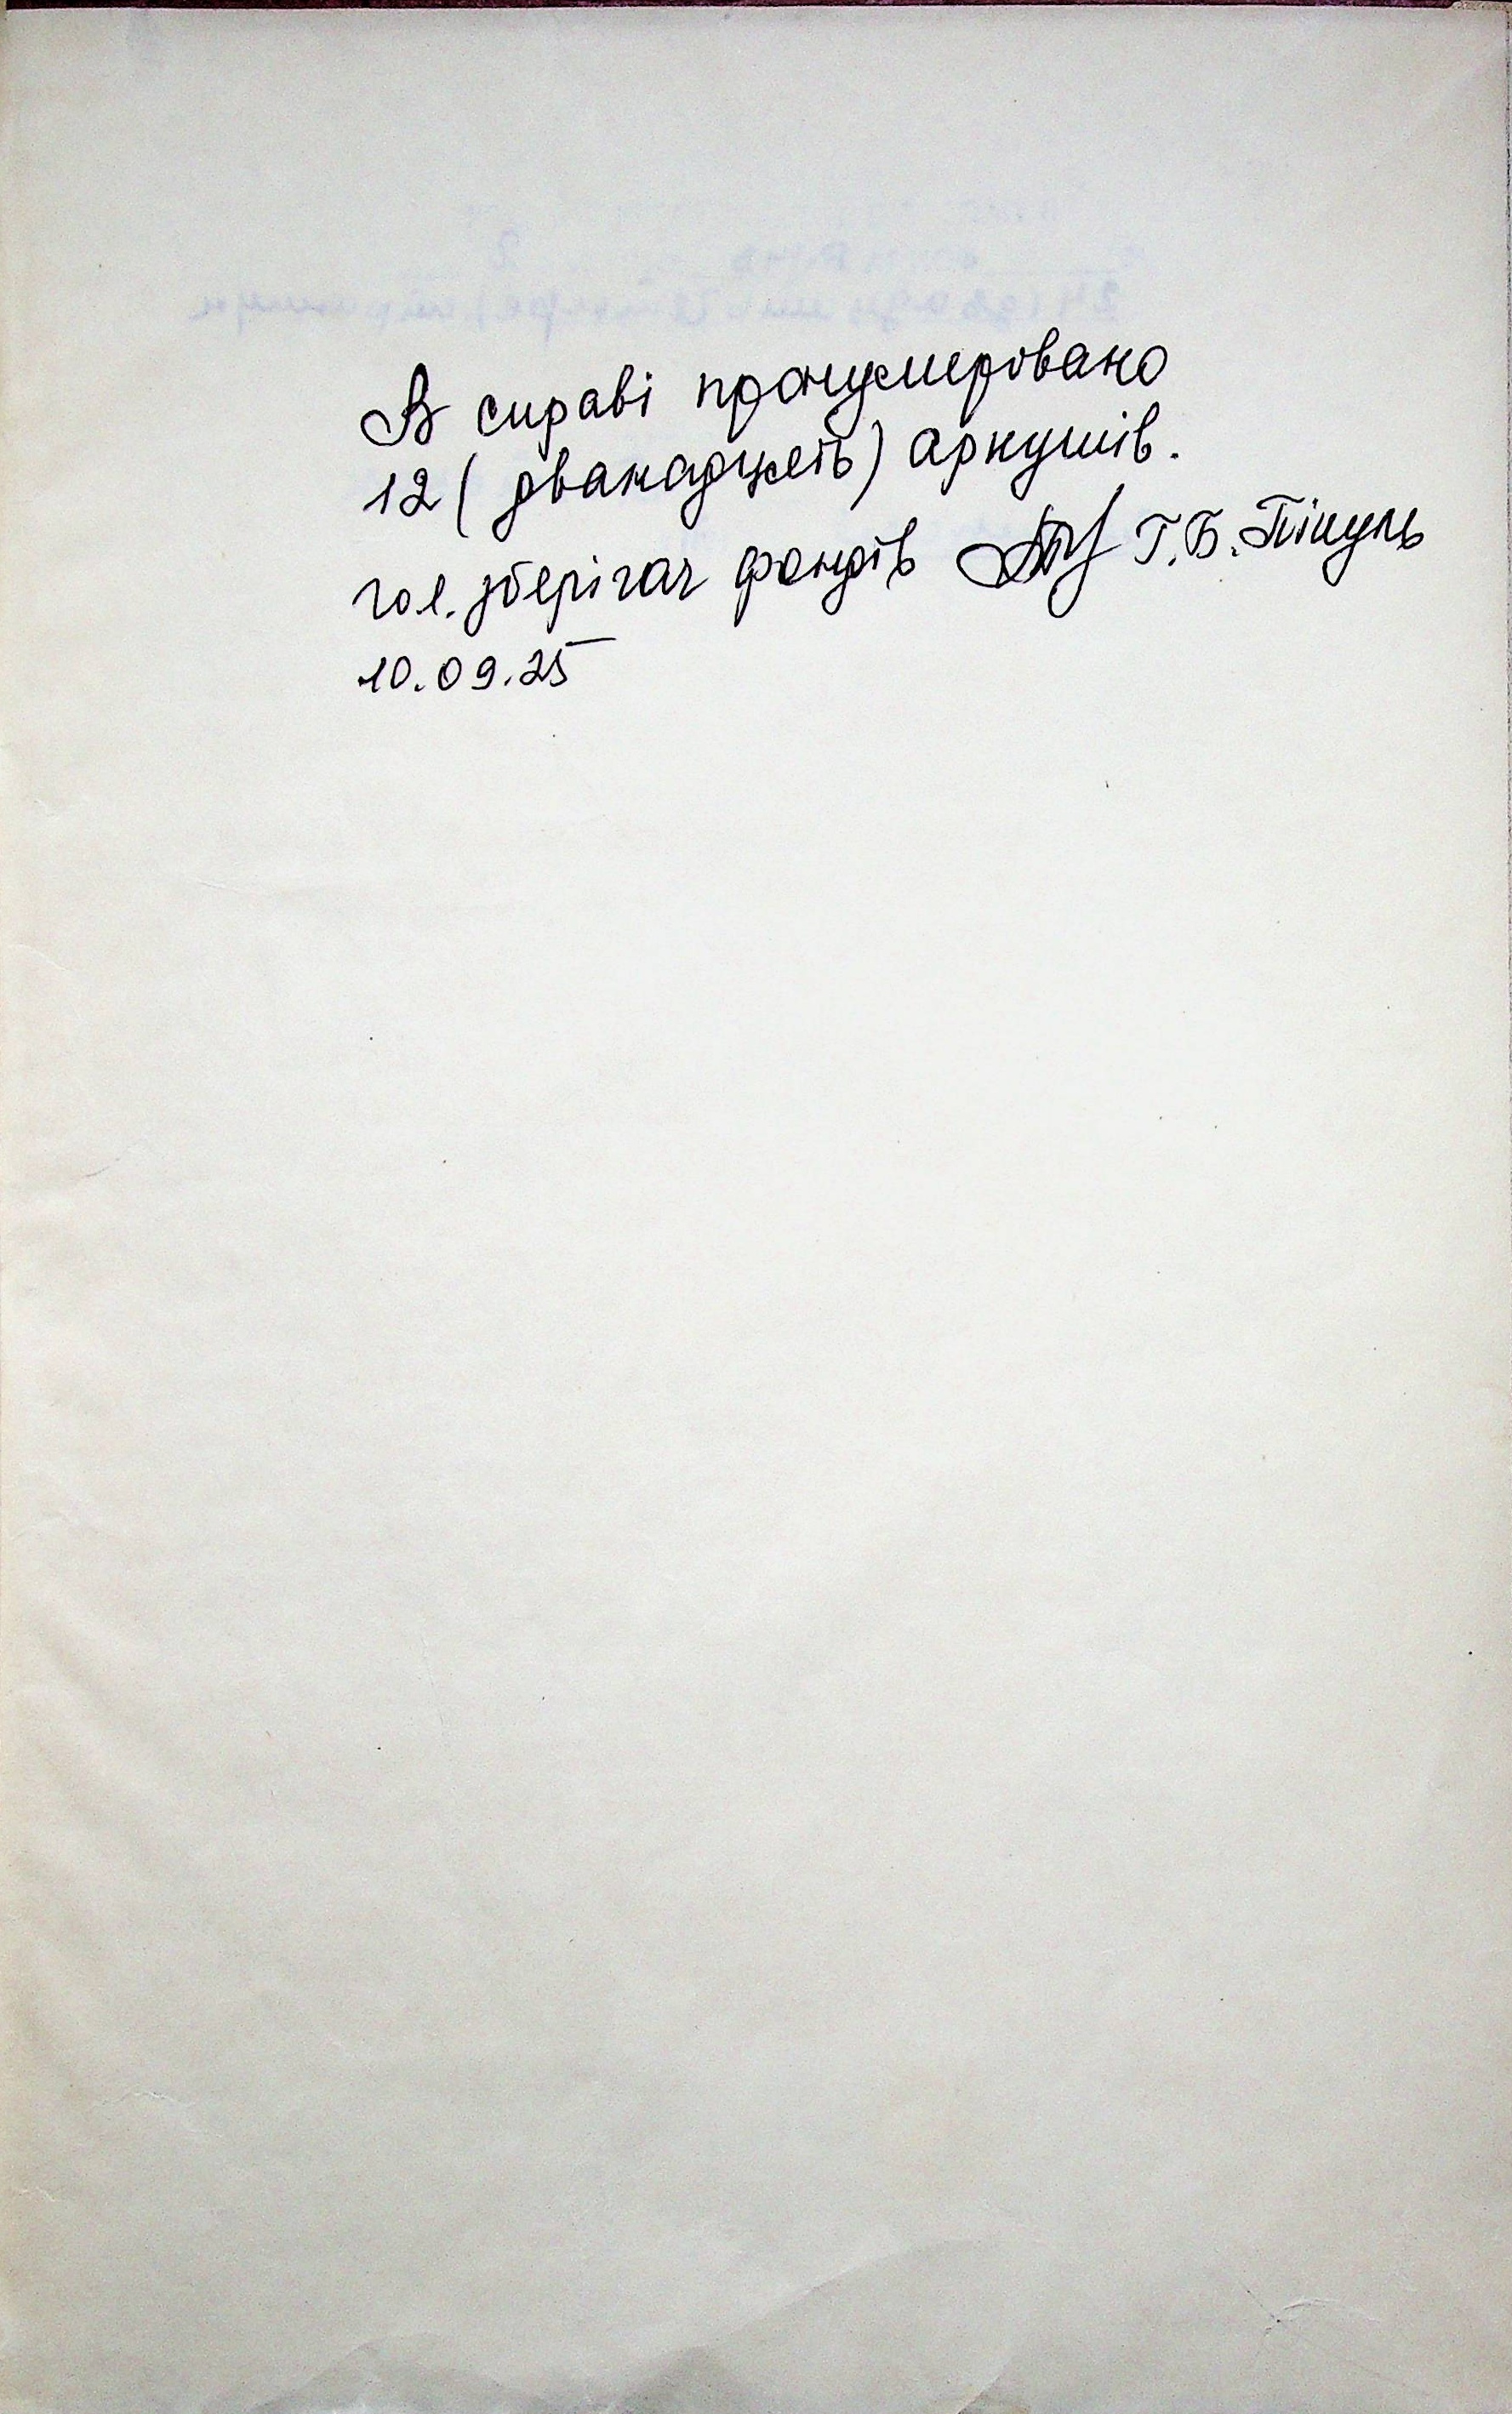 В справі пронумеровано
12 (дванадцять) аркушів.
гол. зберігач фондів Г.Б. Пікуль
10.09.25